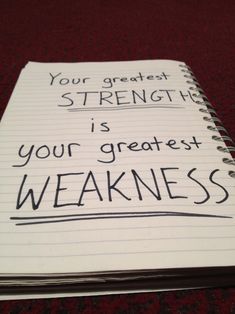 Your greatest
STRENGTH
is
your greatest
WEAKNESS